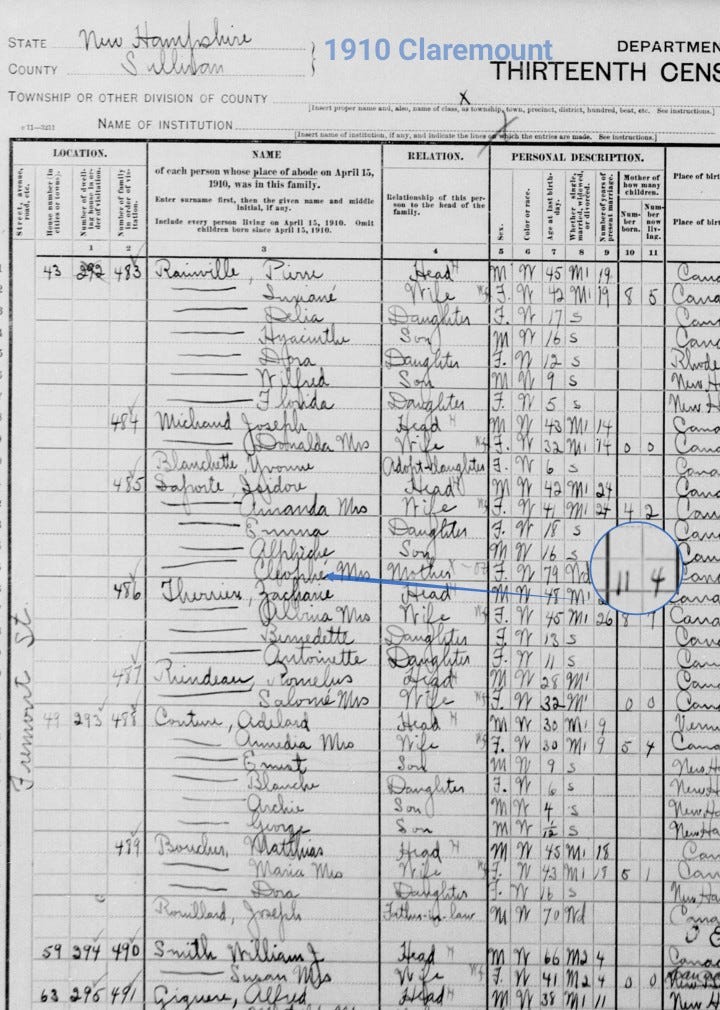 STATE New Hampshire
COUNTY Sullivan
1910 Claremount
DEPARTMEN
THIRTEENTH CENS
TOWNSHIP OR OTHER DIVISION OF COUNTY X
[Insert proper name and, also, name of class, as township, town, precinct, district, hundred, beat, etc. See instructions.]
NAME OF INSTITUTION
[Insert name of institution, if any, and indicate the lines on which the entries are made. See instructions.]
LOCATION. NAME RELATION. PERSONAL DESCRIPTION.
Street, avenue, road, etc.
House number (in cities or towns).
Number of dwelling house in order of visitation.
Number of family in order of visitation.
of each person whose place of abode on April 15, 1910, was in this family.
Enter surname first, then the given name and middle initial, if any.
Include every person living on April 15, 1910. Omit children born since April 15, 1910.
Relationship of this person to the head of the family.
Sex.
Color or race.
Age at last birthday.
Whether single, married, widowed, or divorced.
Number of years of present marriage.
Mother of how many children.
Number born.
Number now living.
Place of birt
Place of birt
1 2 3 4 5 6 7 8 9 10 11
43 292 483 Rainville, Pierre Head M W 45 M1 19 Cana
Wife F. W 42 M1 19 8 5 Cana
Delia Daughter F. W 17 s Cana
Hyacinthe Son M W 16 s Cana
Dora Daughter F. W 12 s Rhode
Wilfred Son M W 9 s New H
Florida Daughter F. W 5 s New H
484 Michaud Joseph Head M W 43 M1 14 Cana
Donalda Mrs Wife F. W 32 M1 14 0 0 Cana
Blanchette, Yvonne Adopt-daughter F. W 6 s Cana
485 Laporte, Isidore Head M W 42 M1 24 Cana
Amanda Mrs Wife F. W 41 M1 24 4 2 Cana
Emma Daughter F. W 18 s Cana
Alphide Son M W 16 s Cana
Cleophé Mrs Mother F. W 79 Wd 11 4 Cana
486 Therrien, Zacharie Head M W 48 M1 Cana
Albina Mrs Wife F. W 45 M1 26 8 7 Cana
Bernedette Daughter F. W 13 s Cana
Antoinette Daughter F. W 11 s Cana
487 Riendeau, Head M W 28 M1 Cana
Salomé Mrs Wife F. W 32 M1 0 0 Cana
Fremont St.
49 293 488 Couture, Adelard Head M W 30 M1 9 Verm
Mrs Wife F. W 30 M1 9 5 4 Cana
Ernest Son M W 9 s New H
Blanche Daughter F. W 6 s New H
Archie Son M W 4 s New Ha
George Son M W /12 s New Ha
489 Boucher, Matthias Head M W 45 M1 18 Can
Maria Mrs Wife F. W 43 M1 18 5 1 Can
Dora Daughter F. W 16 s New Ha
Rouillard, Joseph Father-in-law M W 70 Wd Cana
59 294 490 Smith William J. Head M W 66 M2 4 Canada
Susan Mrs Wife F. W 41 M2 4 0 0
63 295 491 Giguere, Alfred Head M W 38 M1 11 New H